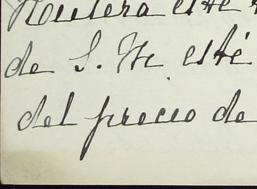 esté
de S. M. esté
del precio de